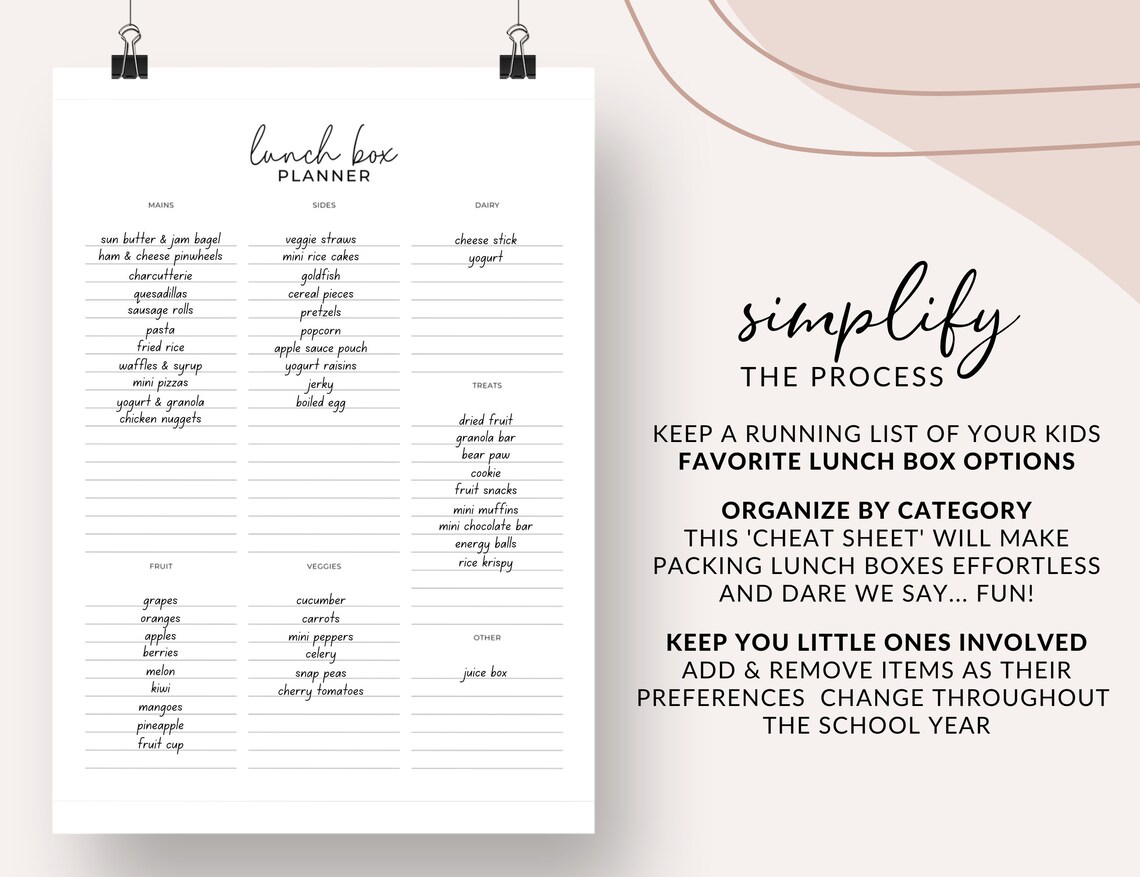 lunch box
PLANNER
MAINS
sun butter & jam bagel
ham & cheese pinwheels
charcutterie
quesadillas
sausage rolls
pasta
fried rice
waffles & syrup
mini pizzas
yogurt & granola
chicken nuggets
SIDES
veggie straws
mini rice cakes
goldfish
cereal pieces
pretzels
popcorn
apple sauce pouch
yogurt raisins
jerky
boiled egg
DAIRY
cheese stick
yogurt
TREATS
dried fruit
granola bar
bear paw
cookie
fruit snacks
mini muffins
mini chocolate bar
energy balls
rice krispy
FRUIT
grapes
oranges
apples
berries
melon
kiwi
mangoes
pineapple
fruit cup
VEGGIES
cucumber
carrots
mini peppers
celery
snap peas
cherry tomatoes
OTHER
juice box
simplify
THE PROCESS
KEEP A RUNNING LIST OF YOUR KIDS
FAVORITE LUNCH BOX OPTIONS
ORGANIZE BY CATEGORY
THIS 'CHEAT SHEET' WILL MAKE
PACKING LUNCH BOXES EFFORTLESS
AND DARE WE SAY... FUN!
KEEP YOU LITTLE ONES INVOLVED
ADD & REMOVE ITEMS AS THEIR
PREFERENCES CHANGE THROUGHOUT
THE SCHOOL YEAR